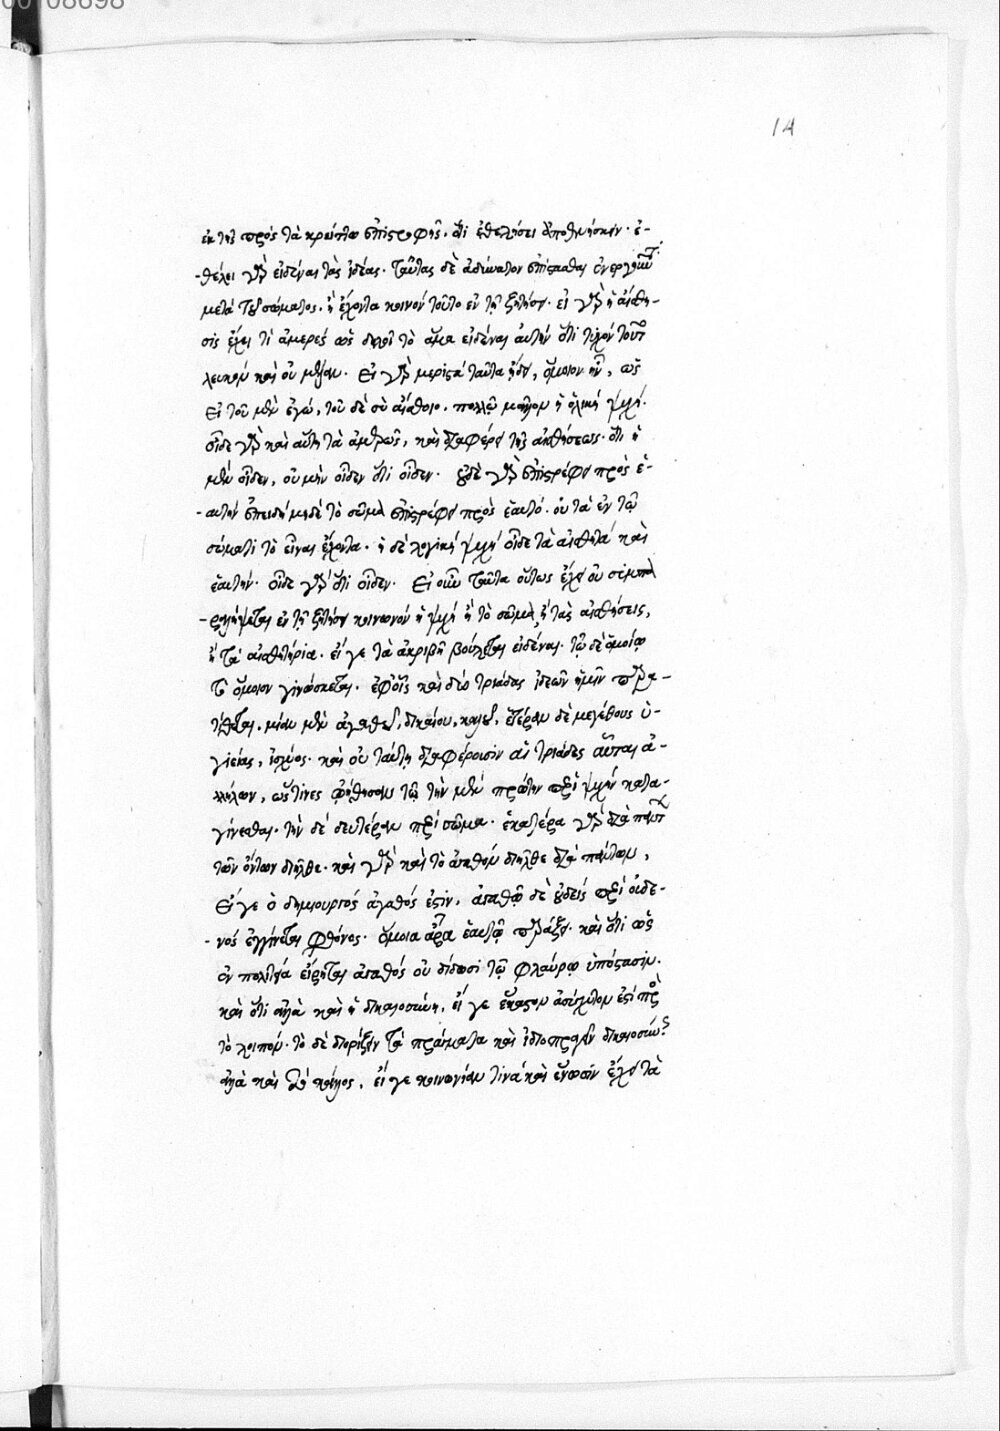 14
ἐκ τῆς πρὸς τὰ κρείττω ἐπιστροφῆς. ὅτι ἐθελήσει ἀποθνήσκειν. ἐ-
-θέλει γὰρ εἰδέναι τὰς ἰδέας. ταύτας δὲ ἀδύνατον ἐπίστασθαι ἐνεργοῦντα
μετὰ τοῦ σώματος. ἢ ἔχοντα κοινὸν τοῦτο ἐν τῇ ζητήσει. εἰ γὰρ ἡ αἴσθη-
σις ἔχει τὶ ἀμερὲς ὡς δηλοῖ τὸ ἅμα εἰδέναι αὐτὴν ὅτι τυχὸν τοῦτο
λευκὸν καὶ οὐ μέλαν. Εἰ γὰρ μεριστὰ ταῦτα ᾔδει, ὅμοιον ἦν, ὡς
εἰ τοῦ μὲν ἐγώ, τοῦ δὲ σὺ αἴσθοιο. πολλῷ μᾶλλον ἡ ὁλικὴ ψυχή.
οἶδε γὰρ καὶ αὕτη τὰ ἀμερῶς, καὶ διαφέρει τῆς αἰσθήσεως. ὅτι ἡ
μὲν οἶδεν, οὐ μὴν οἶδεν ὅτι οἶδεν. οὐδὲ γὰρ ἐπιστρέφει πρὸς ἑ-
-αυτὴν ἐπειδὴ μηδὲ τὸ σῶμα ἐπιστρέφει πρὸς ἑαυτό. οὐ τὰ ἐν τῷ
σώματι τὸ εἶναι ἔχοντα. ἡ δὲ λογικὴ ψυχὴ οἶδε τὰ αἰσθητὰ καὶ
ἑαυτήν. οἶδε γὰρ ὅτι οἶδεν. Εἰ οὖν ταῦτα οὕτως ἔχει οὐ συμπα
-ραλήψεται ἐν τῇ ζητήσει κοινωνὸν ἡ ψυχὴ ἢ τὸ σῶμα, ἢ τὰς αἰσθήσεις,
ἢ τὰ αἰσθητήρια. εἴ γε τὰ ἀκριβῆ βούλεται εἰδέναι. τῷ δὲ ὁμοίῳ
τὸ ὅμοιον γινώσκεται. ἐφ' οἷς καὶ δύο τριάδας ἰδεῶν ἡμῖν παρα-
τίθεται. μίαν μὲν ἀγαθοῦ, δικαίου, καλοῦ, ἑτέραν δὲ μεγέθους ὑ-
γιείας, ἰσχύος. καὶ οὐ ταύτῃ διαφέρουσιν αἱ τριάδες αὗται ἀ-
λλήλων, ὥς τινες ᾠήθησαν τῷ τὴν μὲν πρώτην περὶ ψυχὴν κατα-
γίνεσθαι. τὴν δὲ δευτέραν περὶ σῶμα. ἑκατέρα γὰρ διὰ πάντων
τῶν ὄντων διῆλθε. καὶ γὰρ καὶ τὸ ἀγαθὸν διῆλθε διὰ πάντων,
Εἴ γε ὁ δημιουργὸς ἀγαθός ἐστιν, ἀγαθῷ δὲ οὐδεὶς περὶ οὐδε-
-νὸς ἐγγίνεται φθόνος. ὅμοια ἄρα ἑαυτῷ παράξει. καὶ ὅτι ὡς
ἐν πολιτείᾳ εἴρηται ἀγαθὸς οὐ δίδωσι τῷ φλαύρῳ ὑπόστασιν.
καὶ ὅτι ἀλλὰ καὶ ἡ δικαιοσύνη, εἴ γε ἕκαστον ἀσύγχυτον ἐστὶ πρὸς
τὸ λοιπόν. τὸ δὲ διορίζειν τὰ πράγματα καὶ ἰδιοπραγεῖν δικαιοσύνης
ἀλλὰ καὶ τὸ κάλλος, εἴ γε κοινωνίαν τινὰ καὶ ἕνωσιν ἔχει τὰ